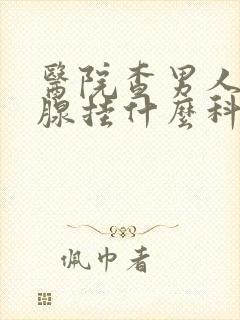 醫院查男人
腺挂什麼科
佩巾者